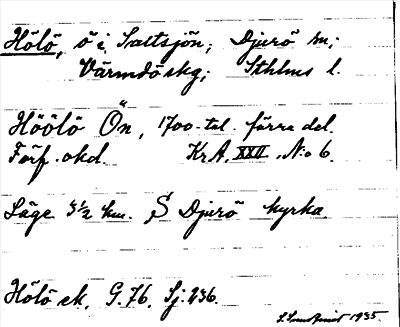 Hölö, ö i Saltsjön; Djurö sn;
Värmdö skg; Sthlms l.
Höölö Ön, 1700-tal. förra del.
Förf. okd. Kr A, XXII, N:o 6.
Läge 3½ km. S Djurö kyrka.
Hölö ek. G.76, Sj. 236.
1935